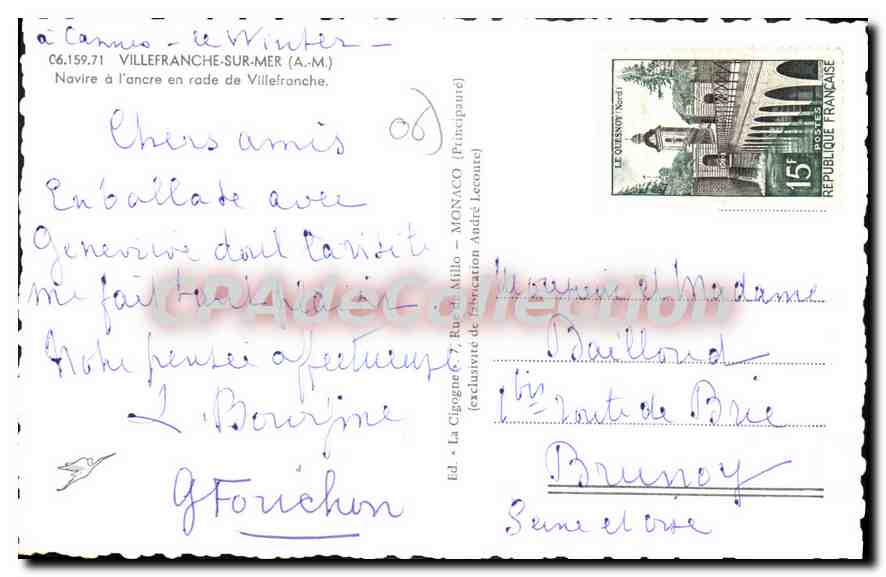 à Cannes - le Winter -
06.159.71 VILLEFRANCHE-SUR-MER (A.-M.)
Navire à l'ancre en rade de Villefranche.
06
Chers amis
En ballade avec
Geneviève dont la visite
me fait tant plaisir
Notre pensée affectueuse
L. Bourgine
G Fourchon
Ed. "La Cigogne", 7, Rue de Millo - MONACO (Principauté)
(exclusivité de fabrication André Lecourc)
LE QUESNOY (Nord)
15F
POSTES
REPUBLIQUE FRANÇAISE
Monsieur et Madame
Bailloud
1 bis route de Brie
Brunoy
Seine et Oise
CPAdeCollection